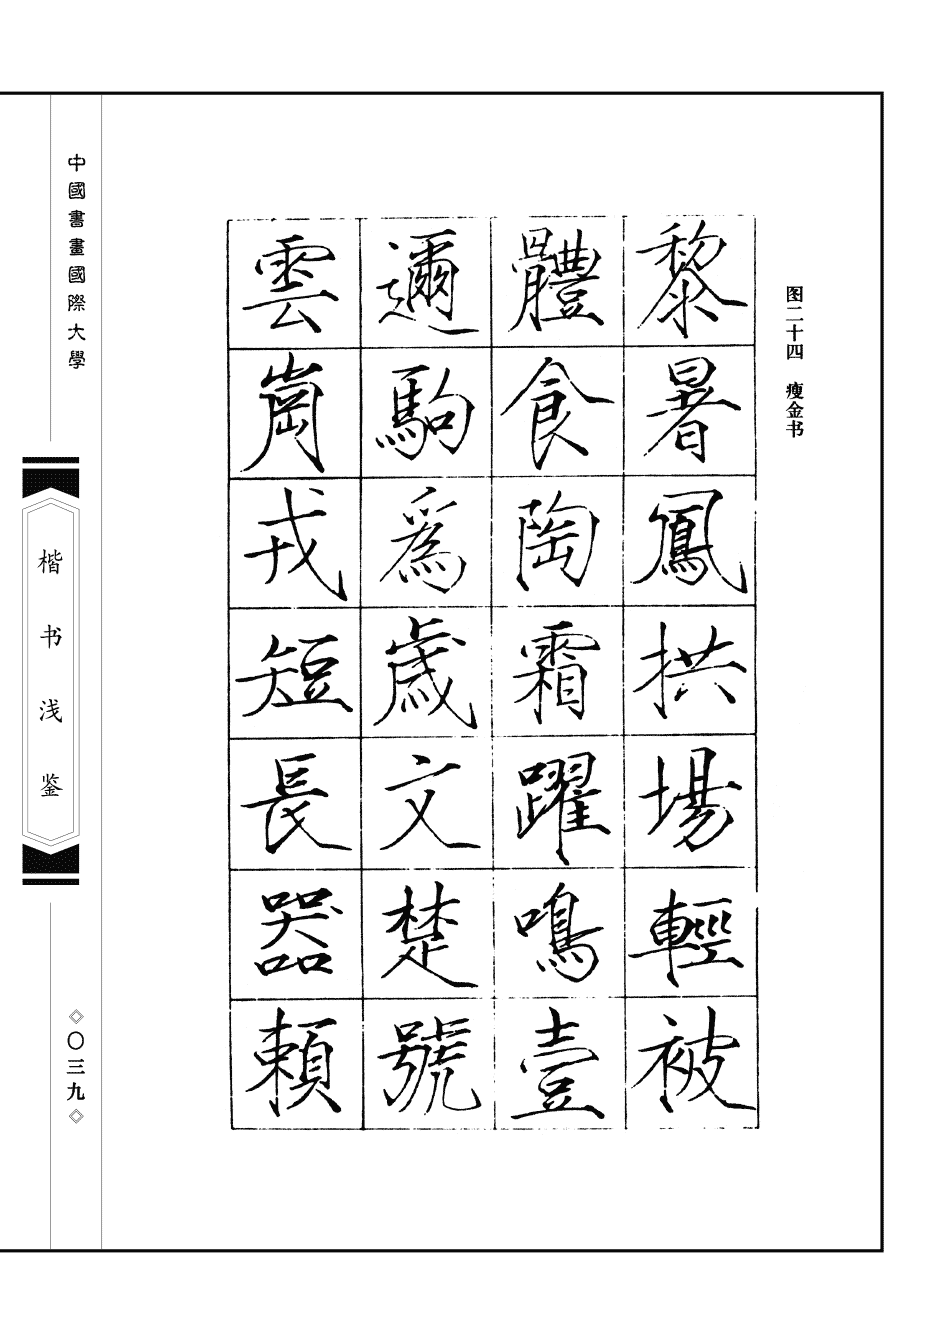 图二十四 瘦金书
黎暑鳳拱場輕被
體食陶霜躍鳴壹
邇駒爲歲文楚號
雲崗戎短長器賴
中國書畫國際大學
楷书浅鉴
◇〇三九◇